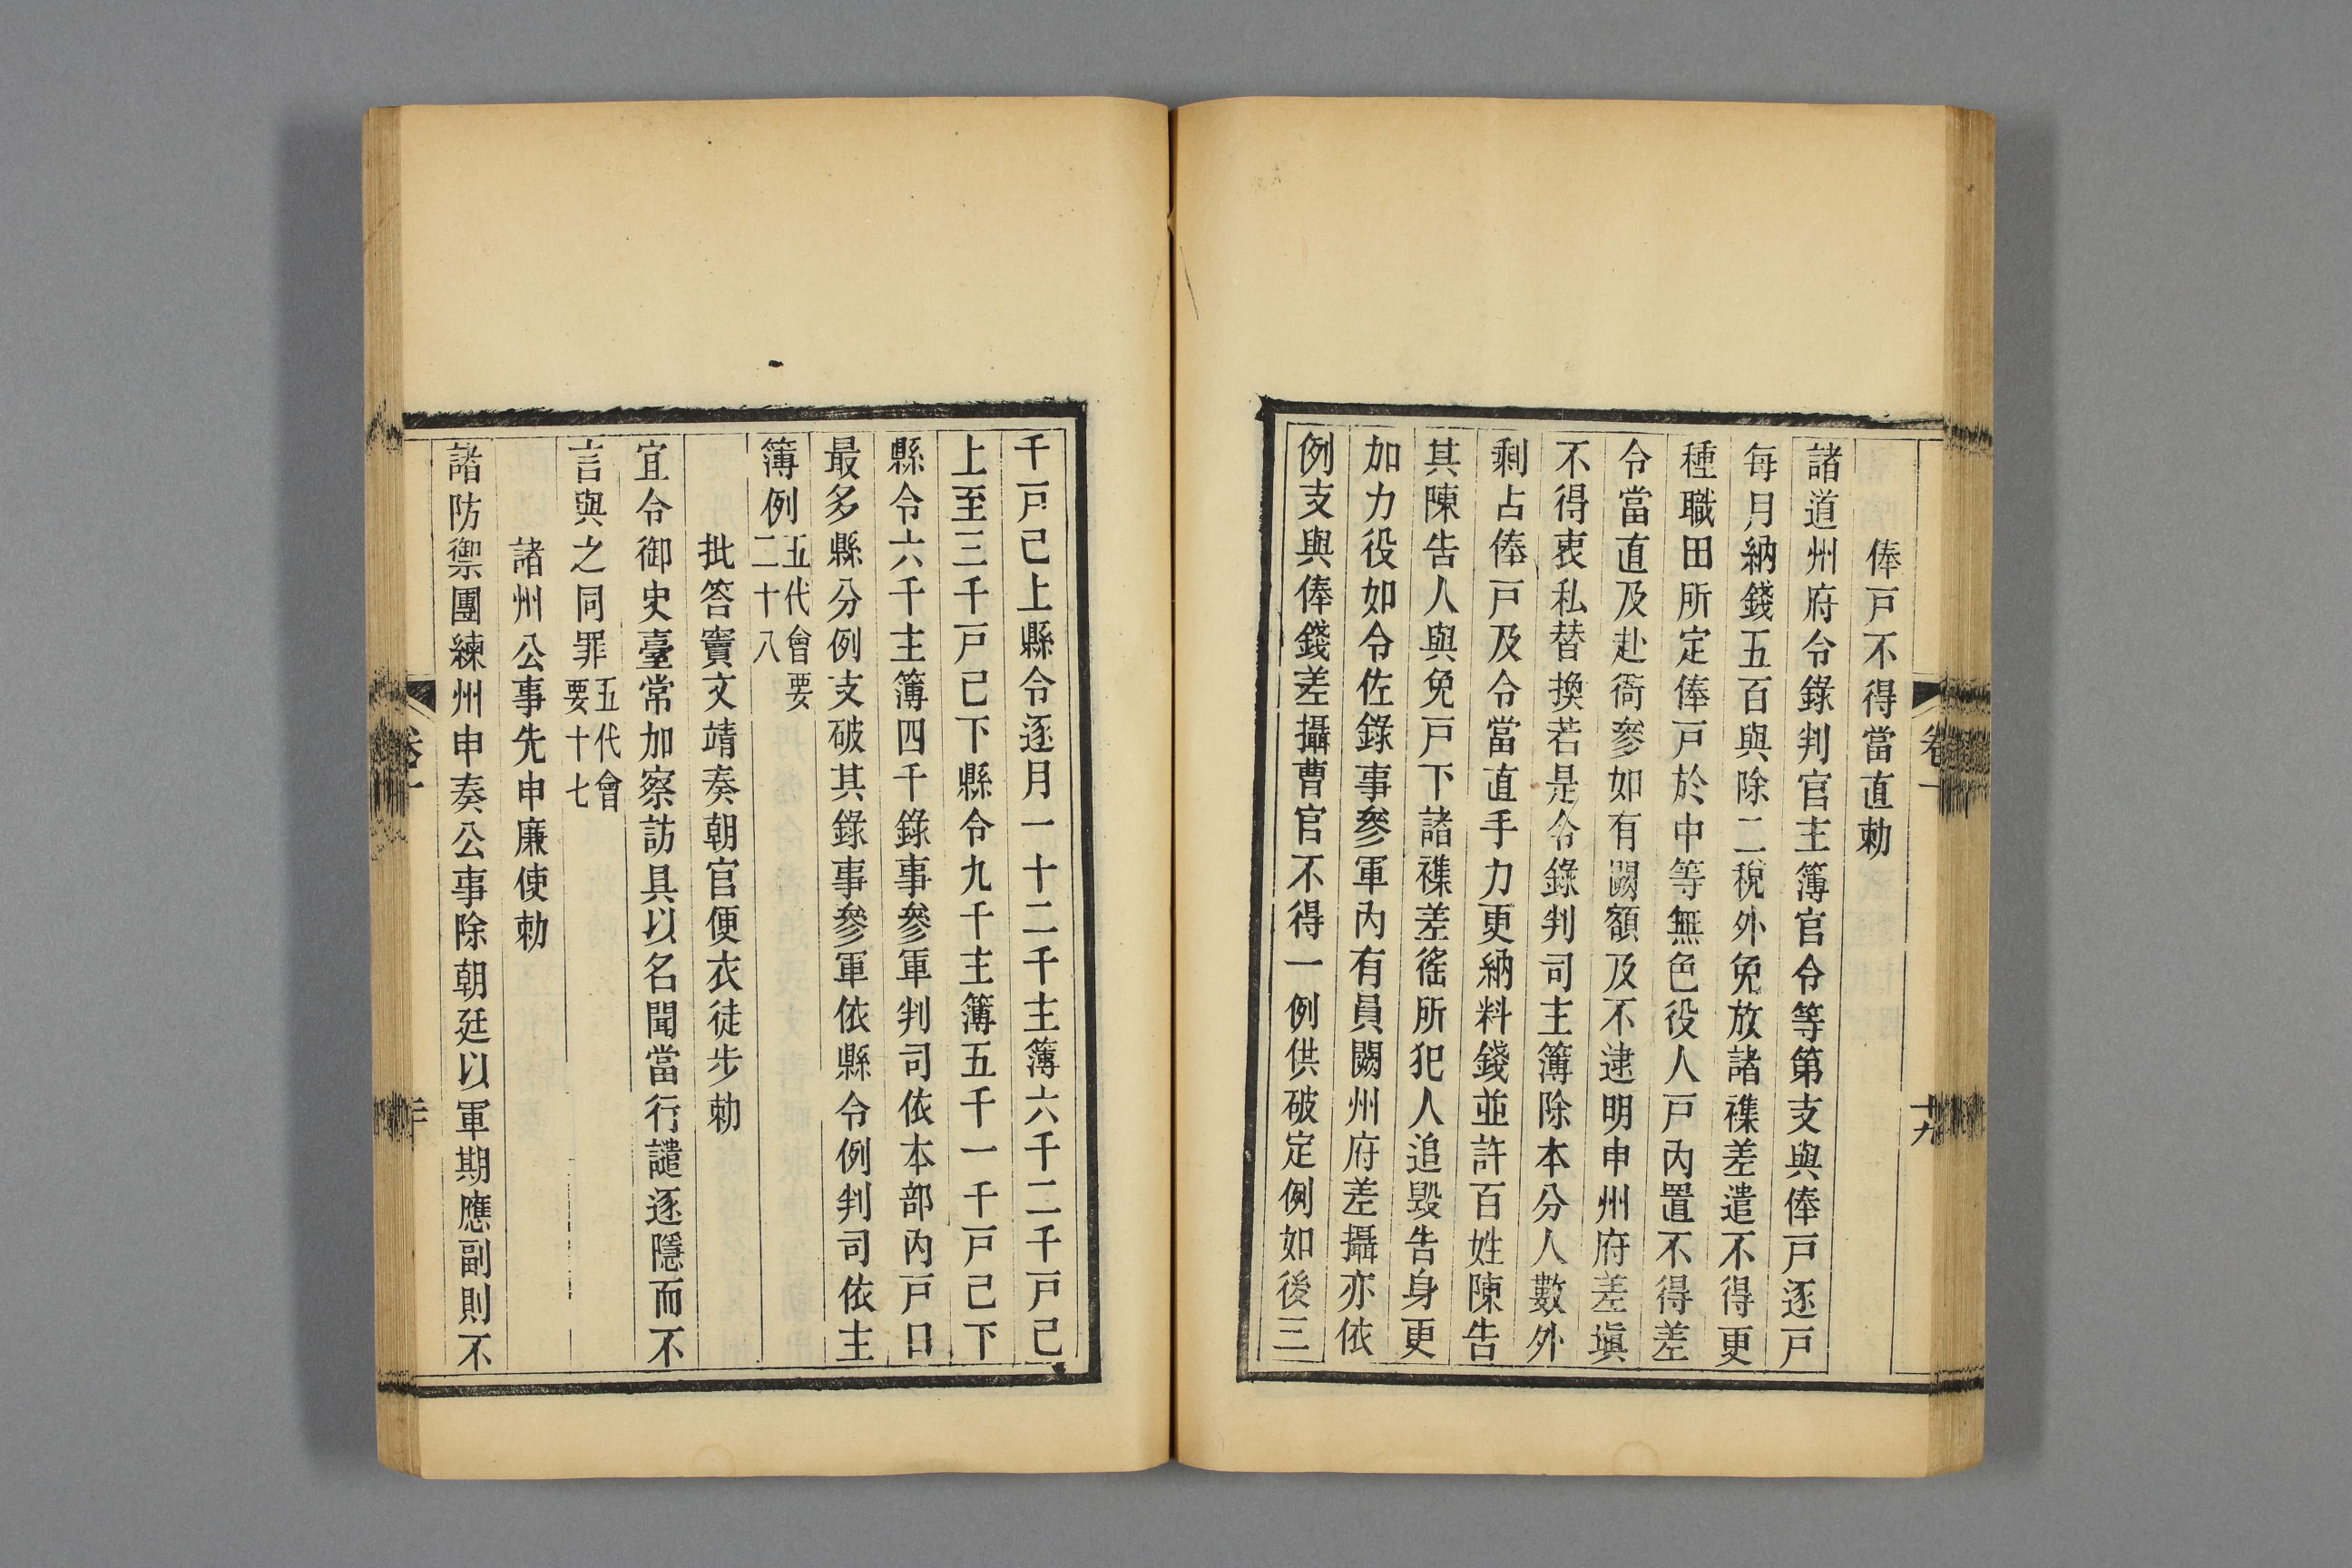 俸戸不得當直勅
諸道州府令錄判官主簿官令等第支與俸戸逐戸
每月納錢五百與除二稅外免放諸襍差遣不得更
種職田所定俸戸於中等無色役人戸內置不得差
令當直及赴衙參如有闕額及不逮明申州府差塡
不得衷私替換若是令錄判司主簿除本分人數外
剩占俸戸及令當直手力更納料錢並許百姓陳告
其陳告人與免戸下諸襍差徭所犯人追毀告身更
加力役如令佐錄事參軍內有員闕州府差攝亦依
例支與俸錢差攝曹官不得一例供破定例如後三
卷十
十九
千戸已上縣令逐月一十二千主簿六千二千戸已
上至三千戸已下縣令九千主簿五千一千戸已下
縣令六千主簿四千錄事參軍判司依本部內戸口
最多縣分例支破其錄事參軍依縣令例判司依主
簿例五代會要
二十八
批答竇文靖奏朝官便衣徒步勅
宜令御史臺常加察訪具以名聞當行譴逐隱而不
言與之同罪五代會
要十七
諸州公事先申廉使勅
諸防禦團練州申奏公事除朝廷以軍期應副則不